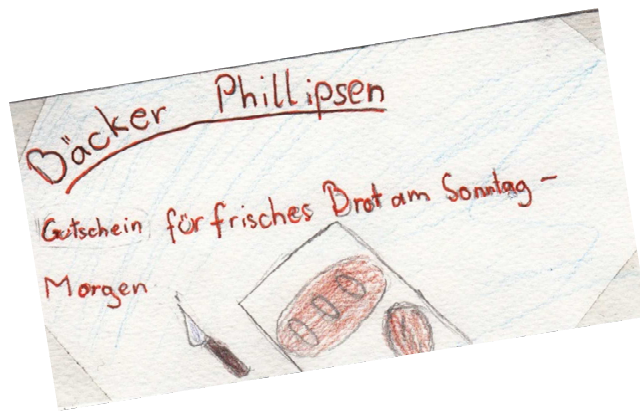 Bäcker Phillipsen
Gutschein för frisches Brot am Sonntag-
Morgen